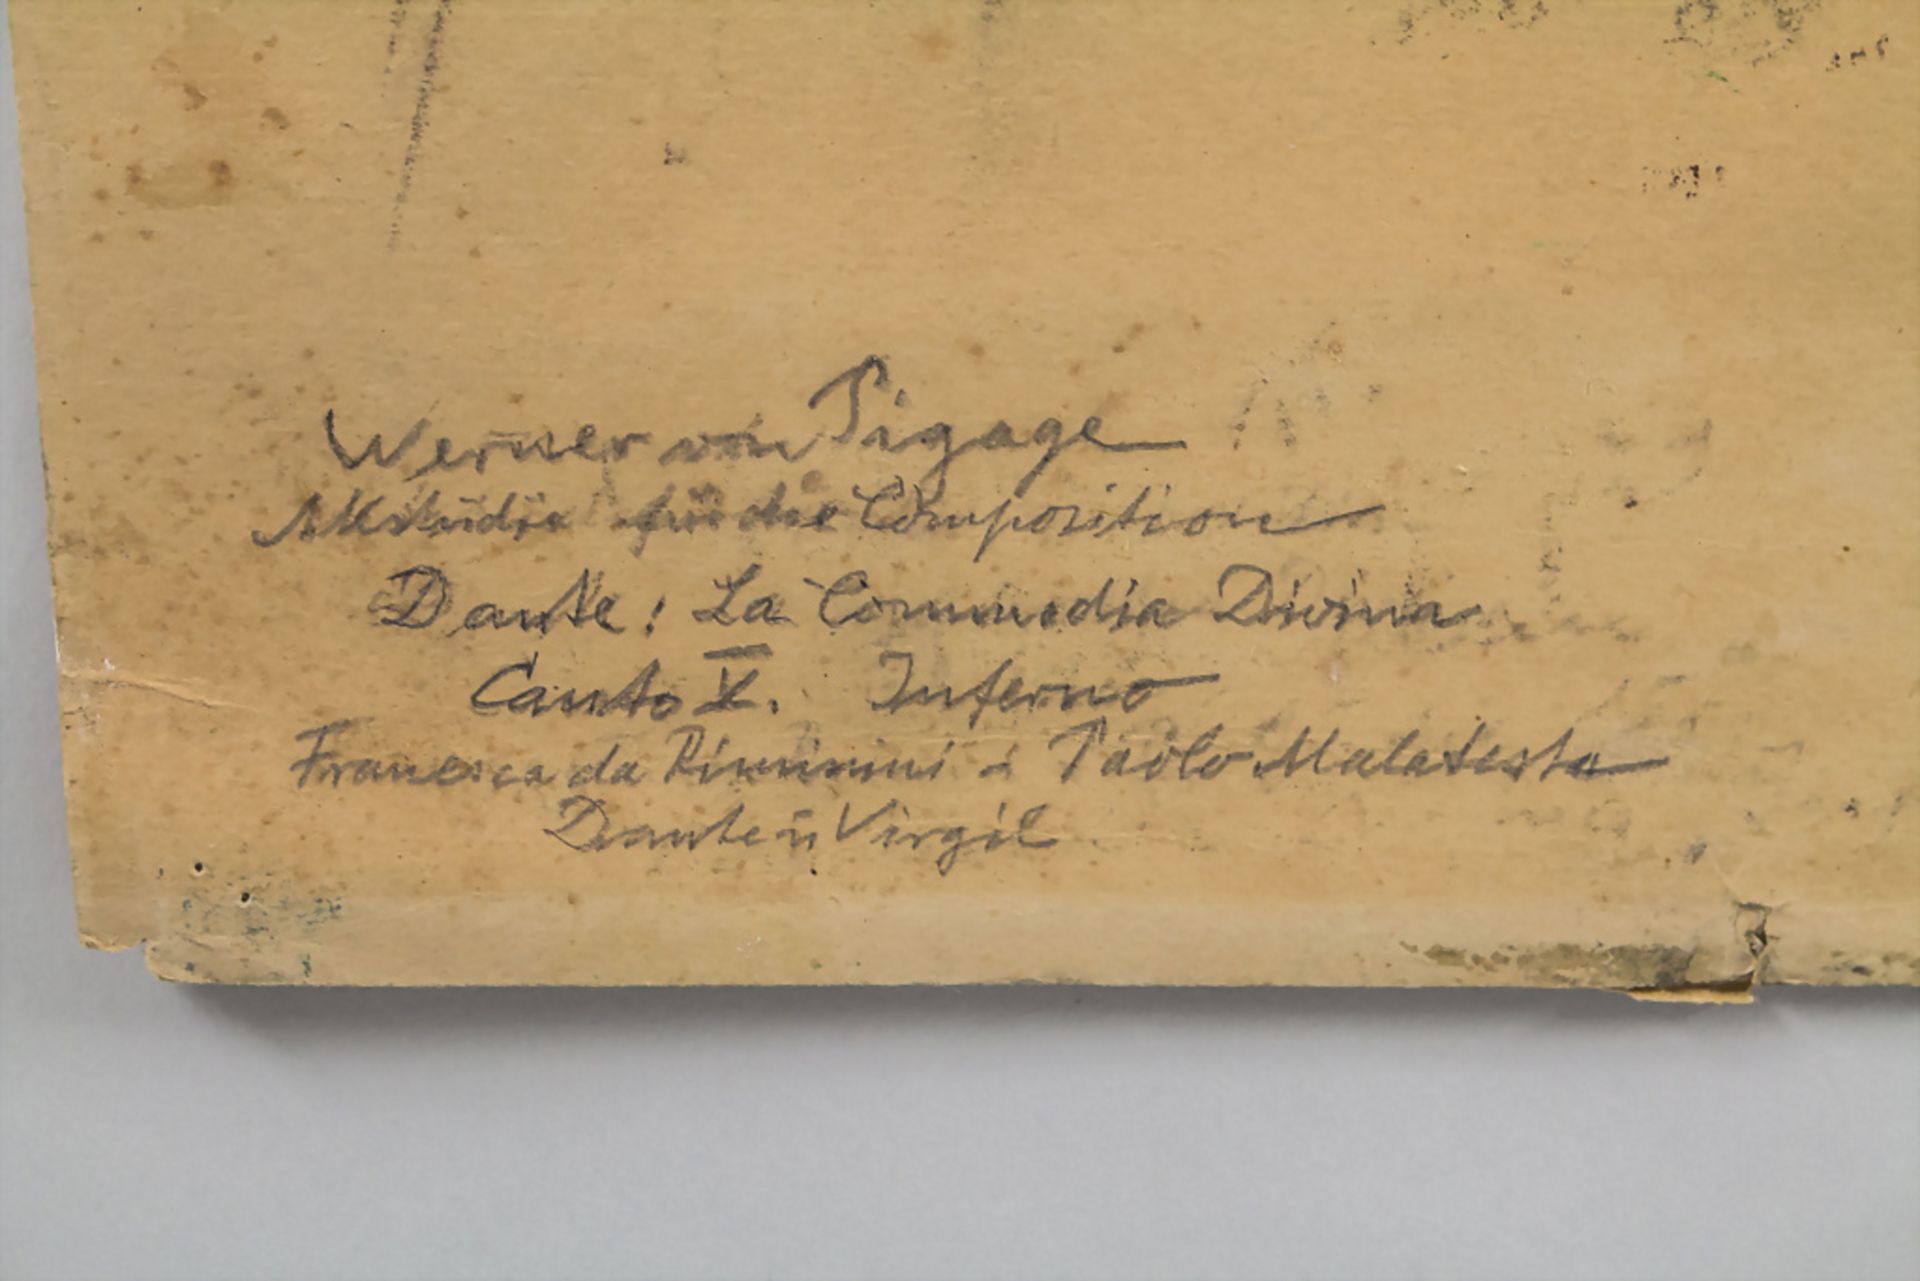 Werner von Pigage
Aktstudie für die Composition
Dante: La Commedia Divina
Canto V. Inferno
Francesca da Rimini i Paolo Malatesta
Dante ū Virgil